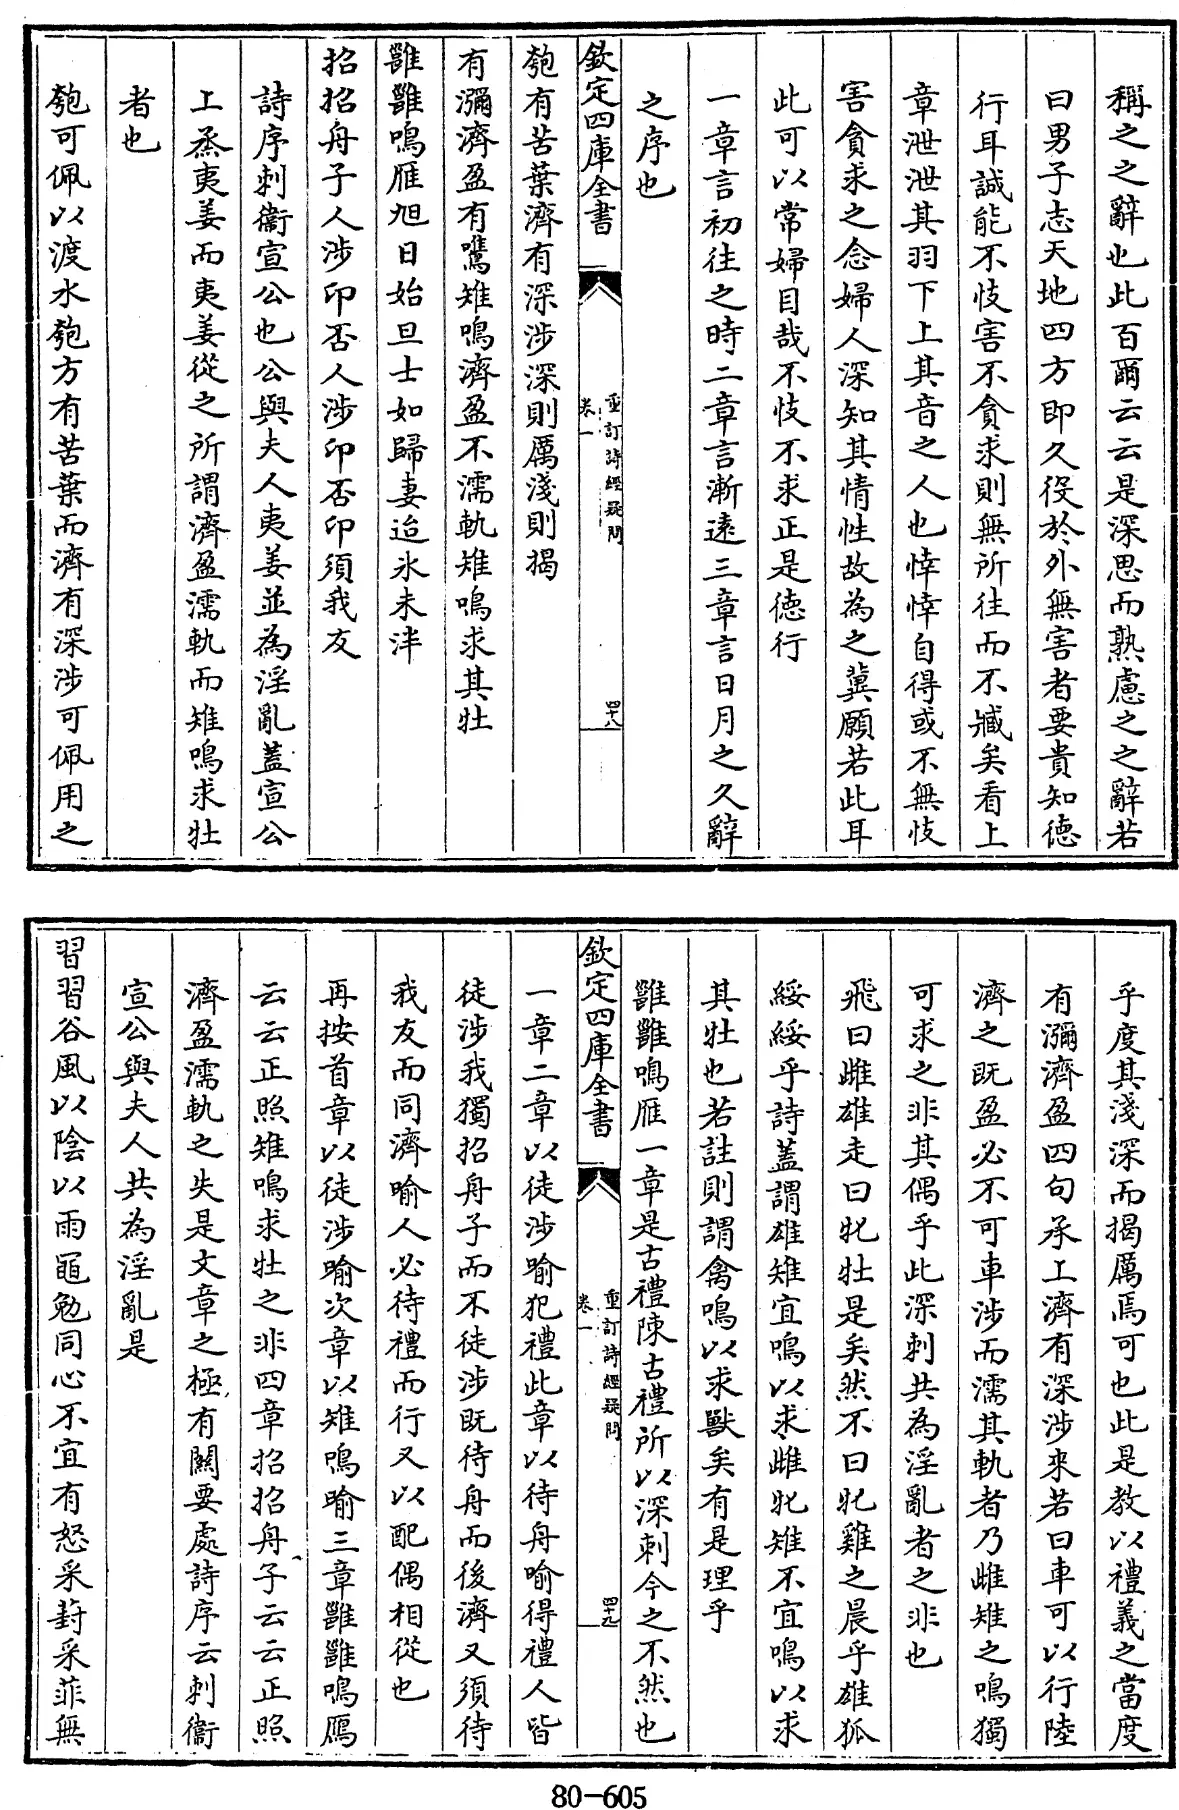 稱之之辭也此百爾云云是深思而熟慮之之辭若
曰男子志天地四方即久役於外無害者要貴知德
行耳誠能不忮害不貪求則無所往而不臧矣看上
章泄泄其羽下上其音之人也悻悻自得或不無忮
害貪求之念婦人深知其情性故為之冀願若此耳
此可以常婦目哉不忮不求正是德行
一章言初往之時二章言漸遠三章言日月之久辭
之序也
欽定四庫全書
重訂詩經疑問
卷一
四十八
匏有苦葉濟有深涉深則厲淺則揭
有瀰濟盈有鷕雉鳴濟盈不濡軌雉鳴求其牡
雝雝鳴雁旭日始旦士如歸妻迨氷未泮
招招舟子人涉卬否人涉卬否卬須我友
詩序刺衞宣公也公與夫人夷姜並為淫亂蓋宣公
上烝夷姜而夷姜從之所謂濟盈濡軌而雉鳴求牡
者也
匏可佩以渡水匏方有苦葉而濟有深涉可佩用之
乎度其淺深而揭厲焉可也此是教以禮義之當度
有瀰濟盈四句承上濟有深涉來若曰車可以行陸
濟之既盈必不可車涉而濡其軌者乃雌雉之鳴獨
可求之非其偶乎此深刺共為淫亂者之非也
飛曰雌雄走曰牝牡是矣然不曰牝雞之晨乎雄狐
綏綏乎詩蓋謂雄雉宜鳴以求雌牝雉不宜鳴以求
其牡也若註則謂禽鳴以求獸矣有是理乎
雝雝鳴雁一章是古禮陳古禮所以深刺今之不然也
欽定四庫全書
重訂詩經疑問
卷一
四十九
一章二章以徒涉喻犯禮此章以待舟喻得禮人皆
徒涉我獨招舟子而不徒涉既待舟而後濟又須待
我友而同濟喻人必待禮而行又以配偶相從也
再按首章以徒涉喻次章以雉鳴喻三章雝雝鳴鴈
云云正照雉鳴求牡之非四章招招舟子云云正照
濟盈濡軌之失是文章之極有關要處詩序云刺衞
宣公與夫人共為淫亂是
習習谷風以陰以雨黽勉同心不宜有怒采葑采菲無
80-605